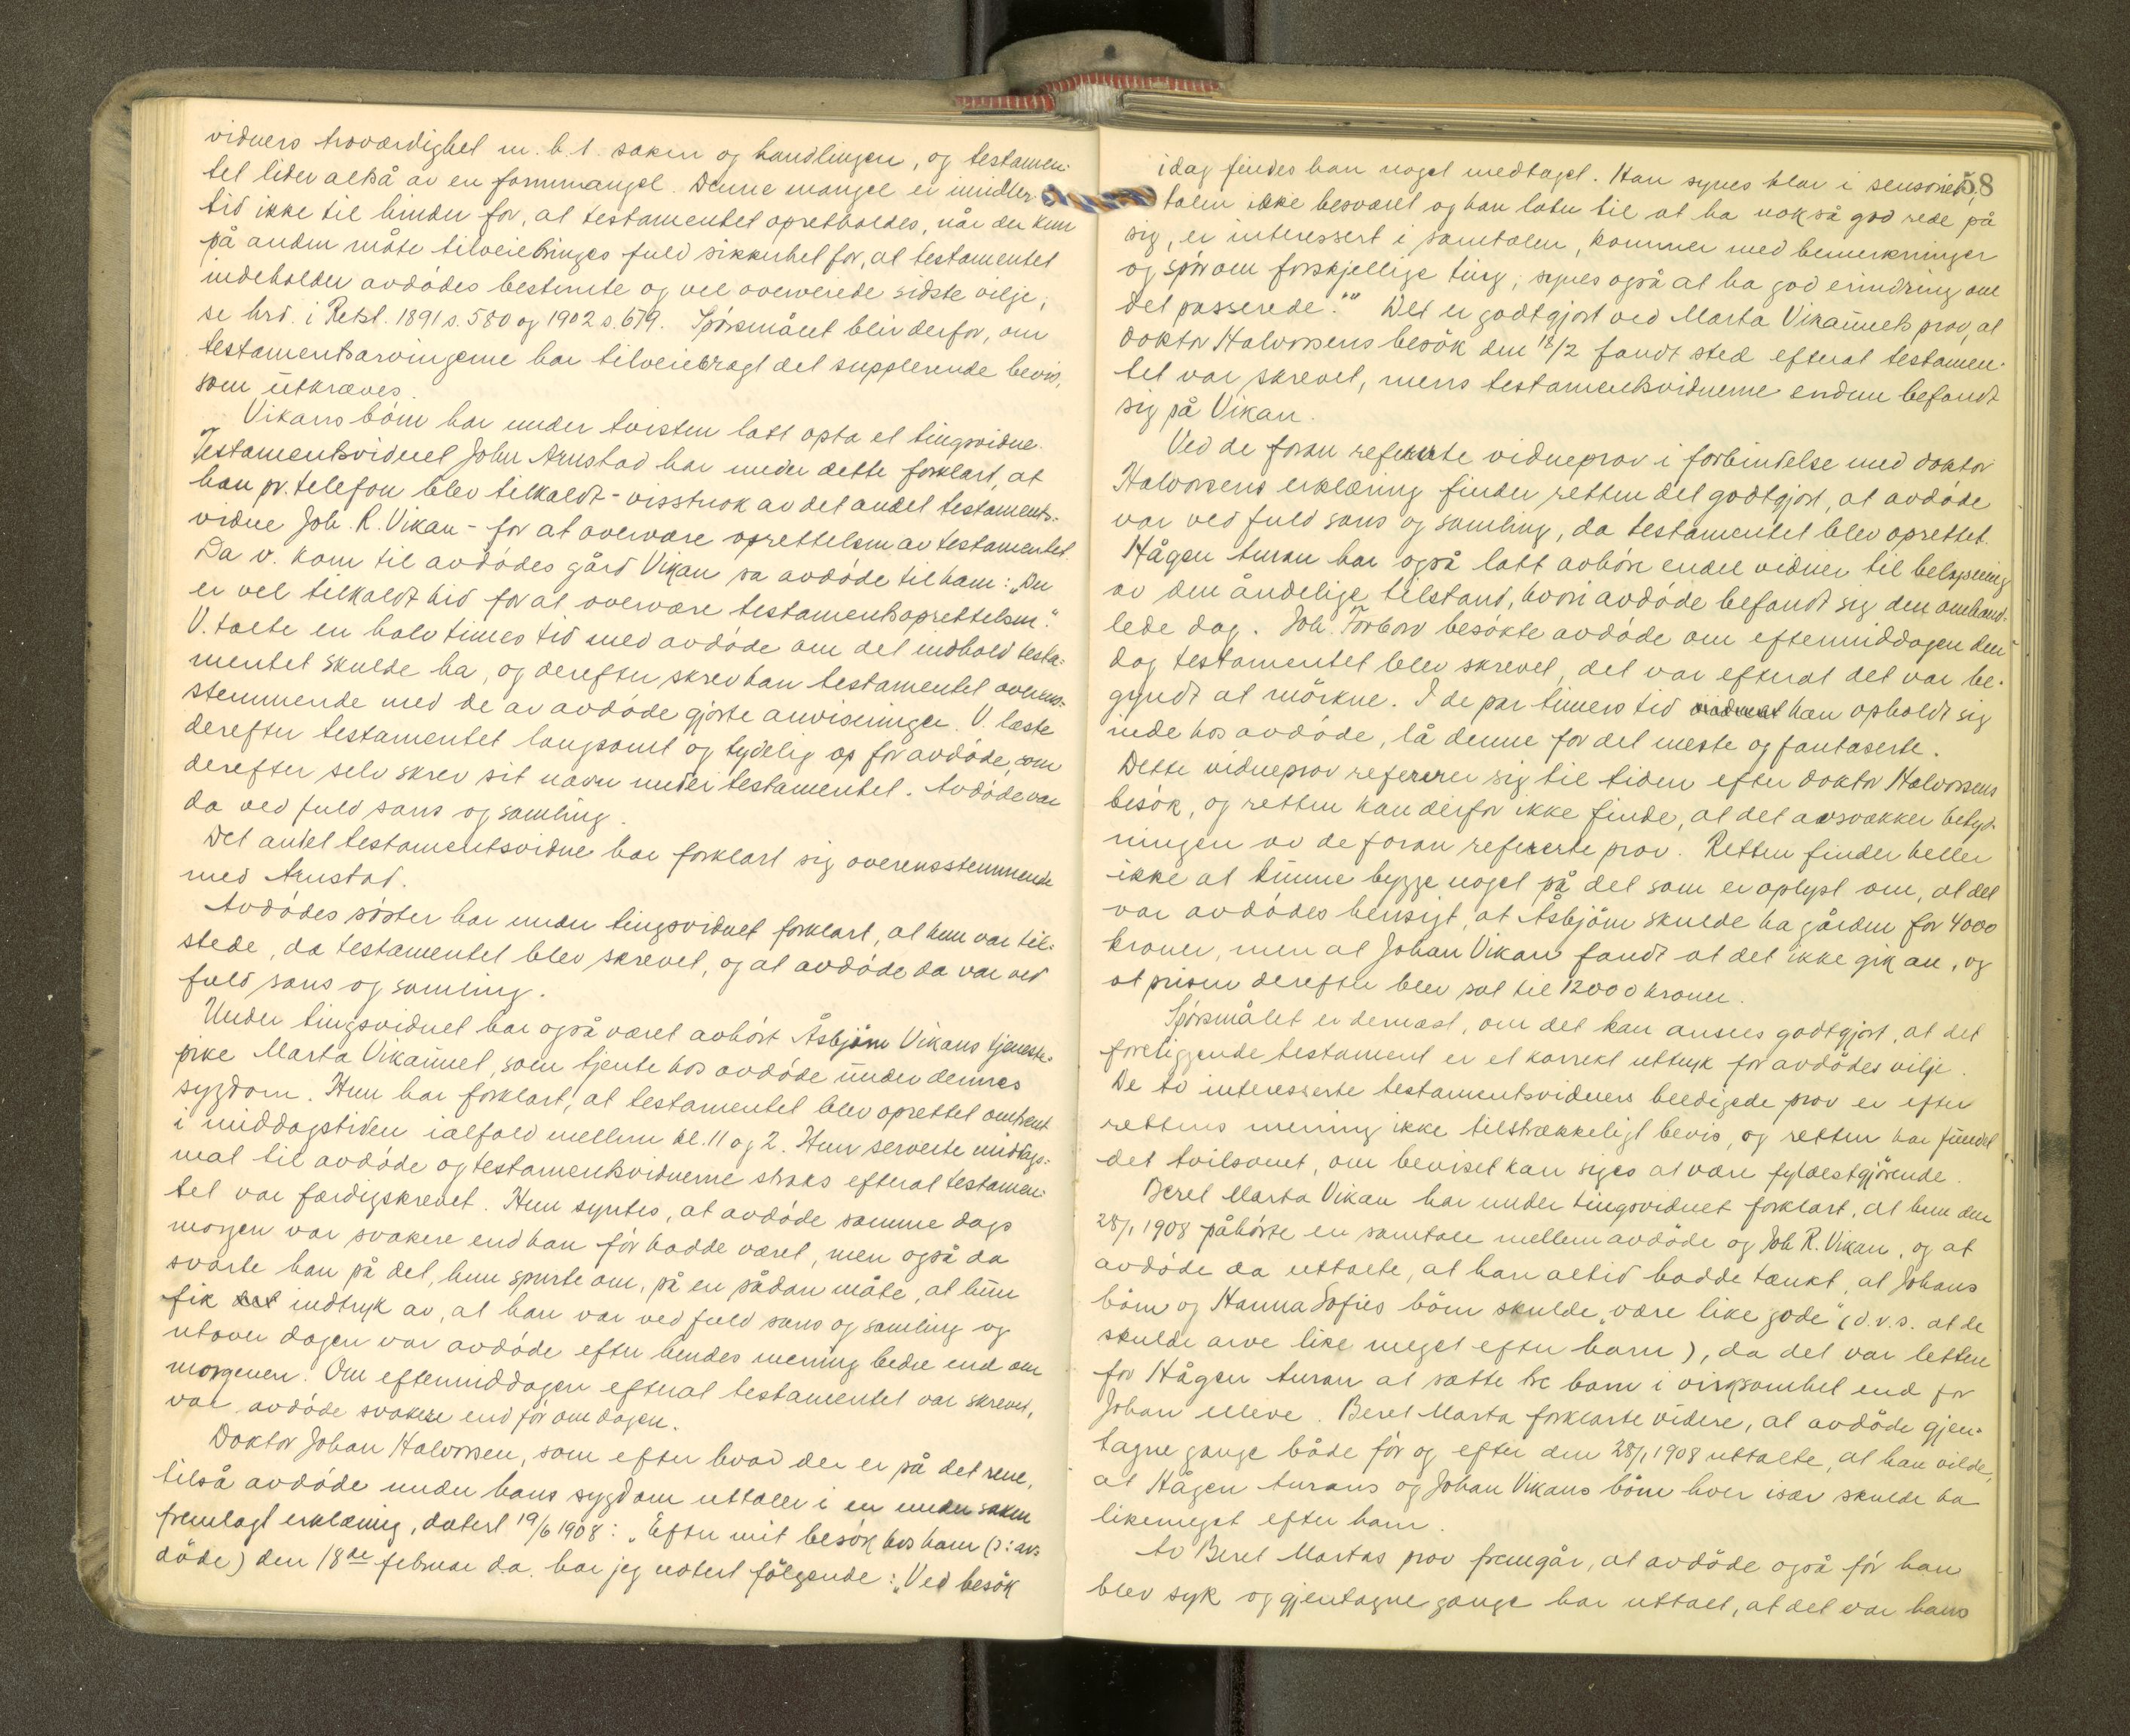 vidners troværdighet m. h. t. saken og handlingen, og testamen-
tet lider altså av en formmangel. Denne mangel er imidler-
tid ikke til hinder for, at testamentet opretholdes, når der kun
på anden måte tilveiebringes fuld sikkerhet for, at testamentet
indeholder avdødes bestemte og vel overveiede sidste vilje,
se hrd. i Retst. 1891 s. 580 og 1902 s. 679. Spörsmålet blir derfor, om
testamentsarvingerne har tilveiebragt det supplerende bevis,
som utkræves.
Vikans börn har under tvisten latt opta et tingsvidne.
Testamentsvidnet John Arnstad har under dette forklart, at
han pr. telefon blev tilkaldt - visstnok av det andet testaments-
vidne Joh. R. Vikan - for at overvære oprettelsen av testamentet.
Da v. kom til avdödes gård Vikan sa avdöde til ham: „Du
er vel tilkaldt hid for at overvære testamentsoprettelsen."
V. talte en halv times tid med avdöde om det indhold testa-
mentet skulde ha, og derefter skrev han testamentet overens-
stemmende med de av avdöde gjorte anvisninger. V. læste
derefter testamentet langsomt og tydelig op for avdöde, som
derefter selv skrev sit navn under testamentet. Avdöde var
da ved fuld sans og samling.
Det andet testamentsvidne har forklart sig overensstemmende
med Arnstad.
Avdödes söster har under tingsvidnet forklart, at hun var til-
stede, da testamentet blev skrevet, og at avdöde da var ved
fuld sans og samling.
Under tingsvidnet har også været avhört Åsbjörn Vikans tjeneste-
pike Marta Vikaunet, som tjente hos avdöde under dennes
sygdom. Hun har forklart, at testamentet blev oprettet omtrent
i middagstiden ialfald mellem kl. 11 og 2. Hun serverte middags-
mat til avdöde og testamentsvidnerne straks efterat testamen-
tet var færdigskrevet. Hun syntes, at avdöde samme dags
morgen var svakere end han för hadde været, men også da
svarte han på det, hun spurte om, på en sådan måte, at hun
fik det indtryk av, at han var ved fuld sans og samling og
utover dagen var avdöde efter hendes mening bedre end om
morgenen. Om eftermiddagen efterat testamentet var skrevet,
var avdöde svakere end för om dagen.
Doktor Johan Halvorsen, som efter hvad der er på det rene,
tilså avdöde under hans sygdom uttaler i en under saken
fremlagt erklæring, datert 19/6 1908: „Efter mit besök hos ham (ɔ: av-
döde) den 18de februar d.a. har jeg notert fölgende: „Ved besök
58
idag findes han noget medtaget. Han synes klar i sensoriet,
talen ikke besværet og han later til at ha nokså god rede på
sig, er interessert i samtalen, kommer med bemerkninger
og spör om forskjellige ting, synes også at ha god erindring om
det passerede."" Det er godtgjort ved Marta Vikaunets prov, at
doktor Halvorsens besök den 18/2 fandt sted efterat testamen-
tet var skrevet, mens testamentsvidnerne endnu befandt
sig på Vikan.
Ved de foran refererte vidneprov i forbindelse med doktor
Halvorsens erklæring finder retten det godtgjort, at avdöde
var ved fuld sans og samling, da testamentet blev oprettet.
Hågen Auran har også latt avhöre endel vidner til belysning
av den åndelige tilstand, hvori avdöde befandt sig den omhand-
lede dag. Joh. Forbord besökte avdöde om eftermiddagen den
dag testamentet blev skrevet, det var efterat det var be-
gyndt at mörkne. I de par timers tid han opholdt sig
inde hos avdöde, lå denne for det meste og fantaserte.
Dette vidneprov refererer sig til tiden efter doktor Halvorsens
besök, og retten kan derfor ikke finde, at det avsvækker betyd-
ningen av de foran refererte prov. Retten finder heller
ikke at kunne bygge noget på det som er oplyst om, at det
var avdödes hensigt, at Åsbjörn skulde ha gården for 4000
kroner, men at Johan Vikan fandt at det ikke gik an, og
at prisen derefter blev sat til 12000 kroner.
Spörsmålet er dernæst, om det kan ansees godtgjort, at det
foreliggende testament er et korrekt uttryk for avdödes vilje.
De to interesserte testamentsvidners beedigede prov er efter
rettens mening ikke tilstrækkeligt bevis, og retten har fundet
det tvilsomt, om beviset kan siges at være fyldestgjörende.
Beret Marta Vikan har under tingsvidnet forklart, at hun den
28/1 1908 påhörte en samtale mellem avdöde og Joh R. Vikan, og at
avdöde da uttalte, at han altid hadde tænkt, at Johans
börn og Hanna Sofies börn skulde „være like gode" (d.v.s. at de
skulde arve like meget efter ham), da det var lettere
for Hågen Auran at sætte tre barn i virksomhet end for
Johan elleve. Beret Marta forklarte videre, at avdöde gjen-
tagne gange både för og efter den 28/1 1908 uttalte, at han vilde,
at Hågen Aurans og Johan Vikans börn hver især skulde ha
likemeget efter ham.
Av Beret Martas prov fremgår, at avdöde også för han
blev syk og gjentagne gange har uttalt, at det var hans